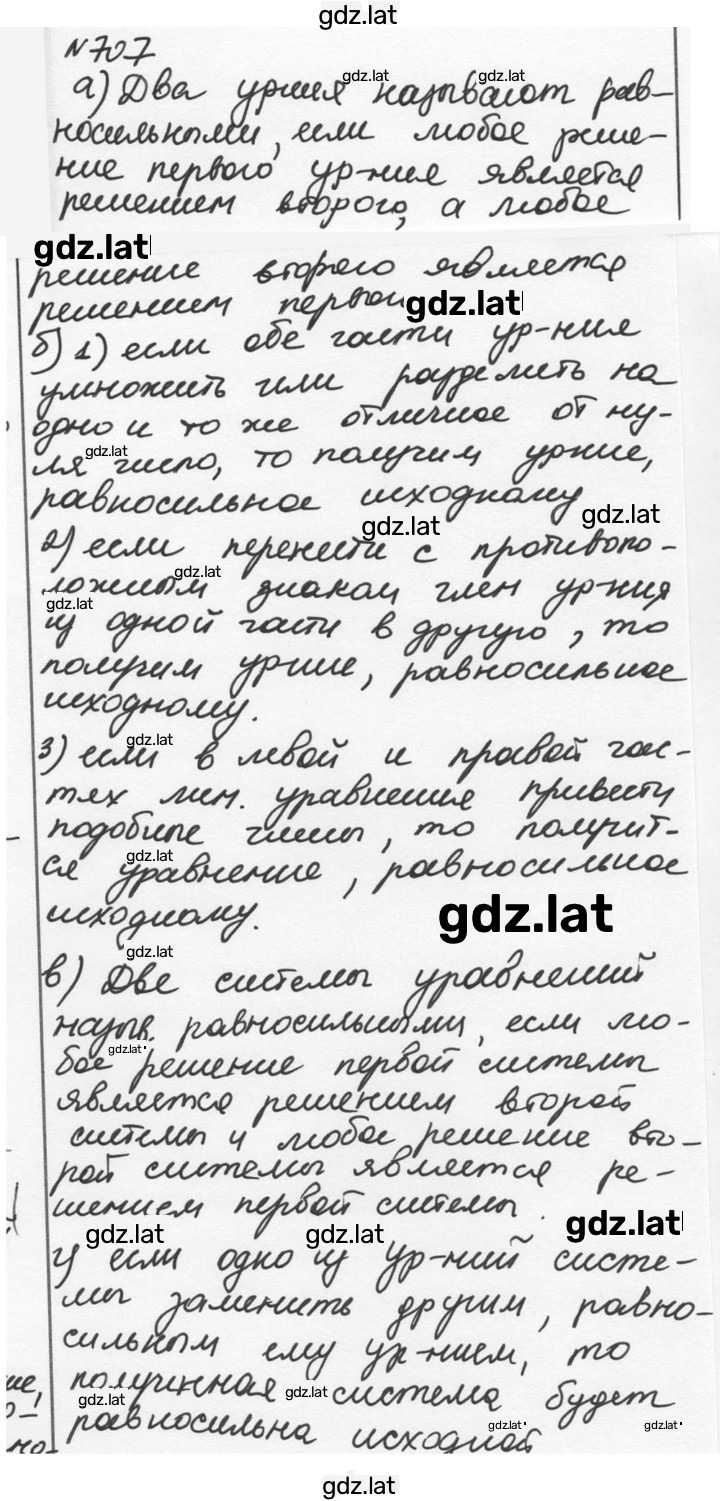 gdz.lat
№707
gdz.lat gdz.lat
а) Два ур-ния называют рав-
носильными, если любое реше-
ние первого ур-ния является
решением второго, а любое
gdz.lat
решение второго является
решением gdz.lat
б) 1) если обе части ур-ния
умножить или разделить на
одно и то же отличное от ну-
gdz.lat
ля число, то получим ур-ние,
равносильное исходному
gdz.lat gdz.lat
2) если перенести с противопо-
gdz.lat
ложным знаком член ур-ния
gdz.lat
из одной части в другую, то
получим ур-ние, равносильное
исходному.
gdz.lat
3) если в левой и правой час-
тях лин. уравнения привести
подобные члены, то получит-
gdz.lat
ся уравнение, равносильное
исходному.
gdz.lat
gdz.lat
в) Две системы уравнений
назыв. равносильными, если лю-
gdz.lat
бое решение первой системы
является решением второй
системы и любое решение вто-
рой системы является ре-
шением первой системы.
gdz.lat gdz.lat gdz.lat
г) если одно из ур-ний систе-
мы заменить другим, равно-
сильным ему ур-нием, то
полученная gdz.lat система будет
gdz.lat
равносильна исходной
gdz.lat gdz.lat
gdz.lat